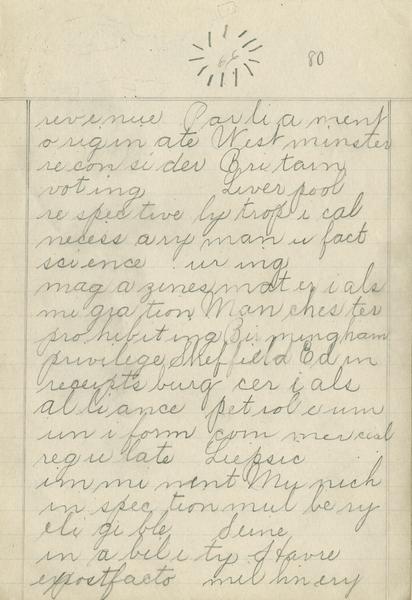 80
revenue Parli a ment
o rigin ate West minster
re con si der Britain
voting Liverpool
re spective ly trop i cal
necess ary man u fact
science ur ing
mag a zines mat er i als
mi gra tion Man ches ter
pro hibit ing Birmingham
privilege Sheffield Ed in
receipts burg cer i als
al li ance pet rol e um
un i form com mer cial
reg u late Liepsic
im mi nent My nich
in spec tion mul be ry
el i gi ble Seine
in a bil i ty Havre
expostfacto mil lin ery